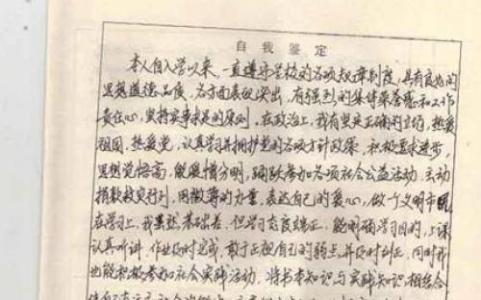 自我鉴定
本人自入学以来,一直遵守学校的各项规章制度,具有良好的
思想道德品质,各方面表现突出,有强烈的集体荣誉感和工作
责任心,坚持实事求是的原则,在政治上,我有坚定正确的立场,热爱
祖国,热爱党,认真学习并拥护党的各项方针政策,积极要求进步,
思想觉悟高,能爱憎分明,踊跃参加各项社会公益活动,主动
捐款救灾行列,用微薄的力量,表达自己的爱心,做个文明市民
在学习上,我虽然基础差,但学习态度端正,能明确学习目的,上课
认真听讲,作业及时完成,敢于正视自己的弱点,并及时纠正,同时我
也能积极参加社会实践活动,将书本知识与实践知识相结合